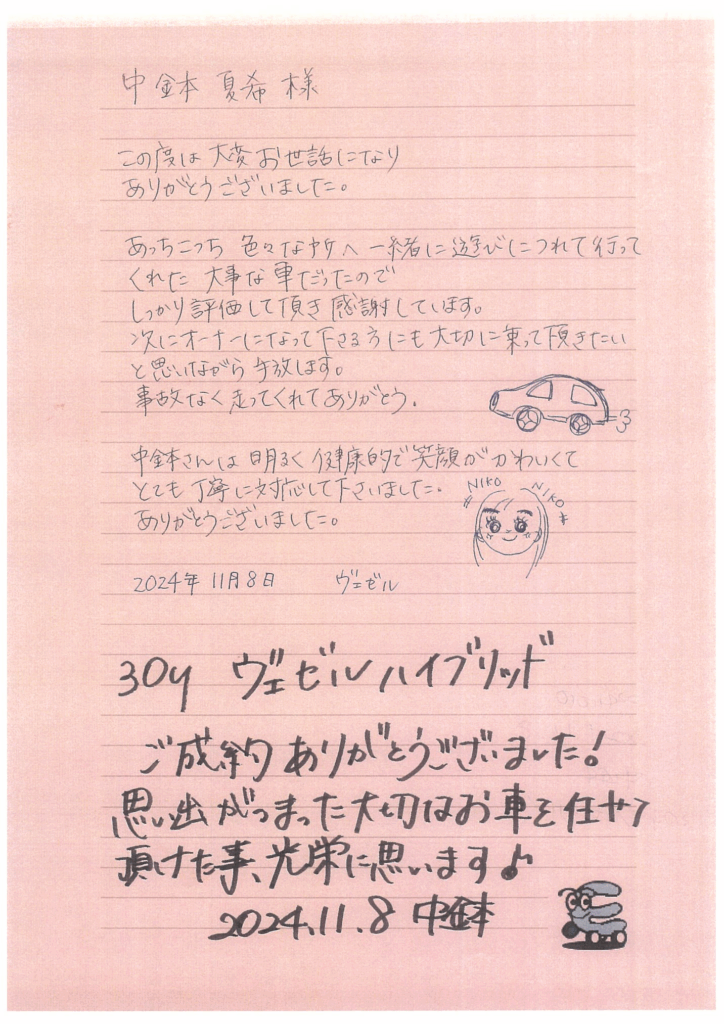 中鉢本 夏希 様
この度は 大変 お世話になり
ありがとうございました。
あっちこっち 色々な所へ 一緒に 遊びにつれて行って
くれた 大事な 車だったので
しっかり評価して頂き 感謝しています。
次にオーナーになって下さる方にも 大切に乗って頂きたい
と思いながら 手放します。
事故なく走ってくれてありがとう。
さんは 明るく 健康的で 笑顔が かわいくて
とても 丁寧に対応して下さいました。
ありがとうございました。
NIKO NIKO
2024年 11月8日 ヴェゼル
30y ヴェゼル ハイブリッド
ご成約 ありがとうございました!
思い出がつまった大切なお車を任せて
頂けた事、光栄に思います♪
2024.11.8